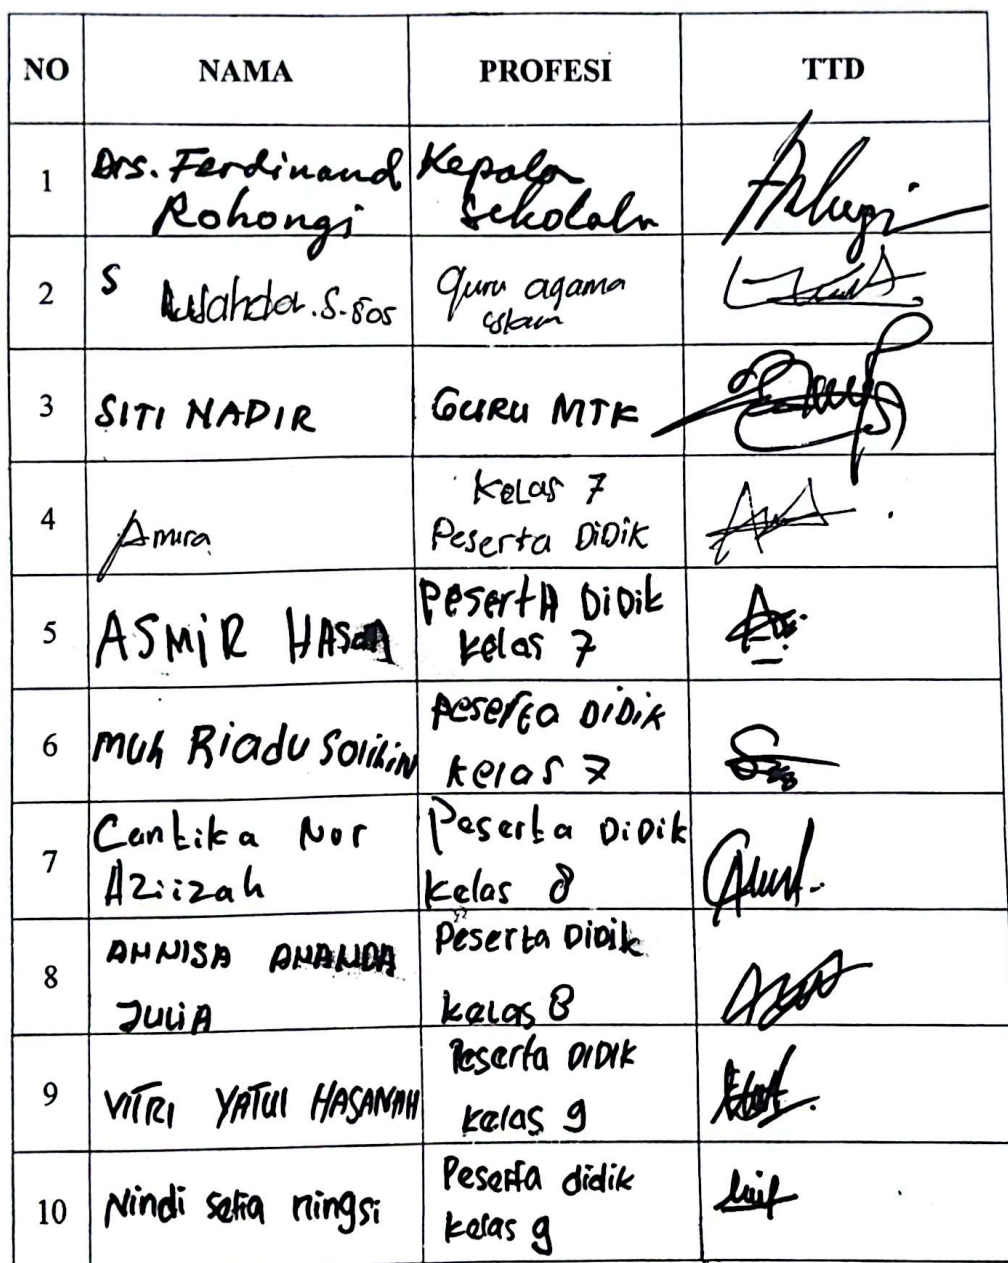 NO NAMA PROFESI TTD
1 Drs. Ferdinand Kepala
Rohongi Sekolah
2 S Wahda.S.Sos Guru agama
islam
3 SITI NADIR GURU MTK
4 Amira Kelas 7
Peserta DiDik
5 ASMiR HASAN Peserta DiDik
kelas 7
6 Muh Riadu Solihin Peserta DiDik
kelas 7
7 Cantika Nor Peserta DiDik
Aziizah kelas 8
8 ANNISA ANANDA Peserta Didik
JULIA kelas 8
9 VITRI YATUI HASANAH Peserta DIDIK
kelas 9
10 Nindi setia ningsi Peserta didik
kelas 9